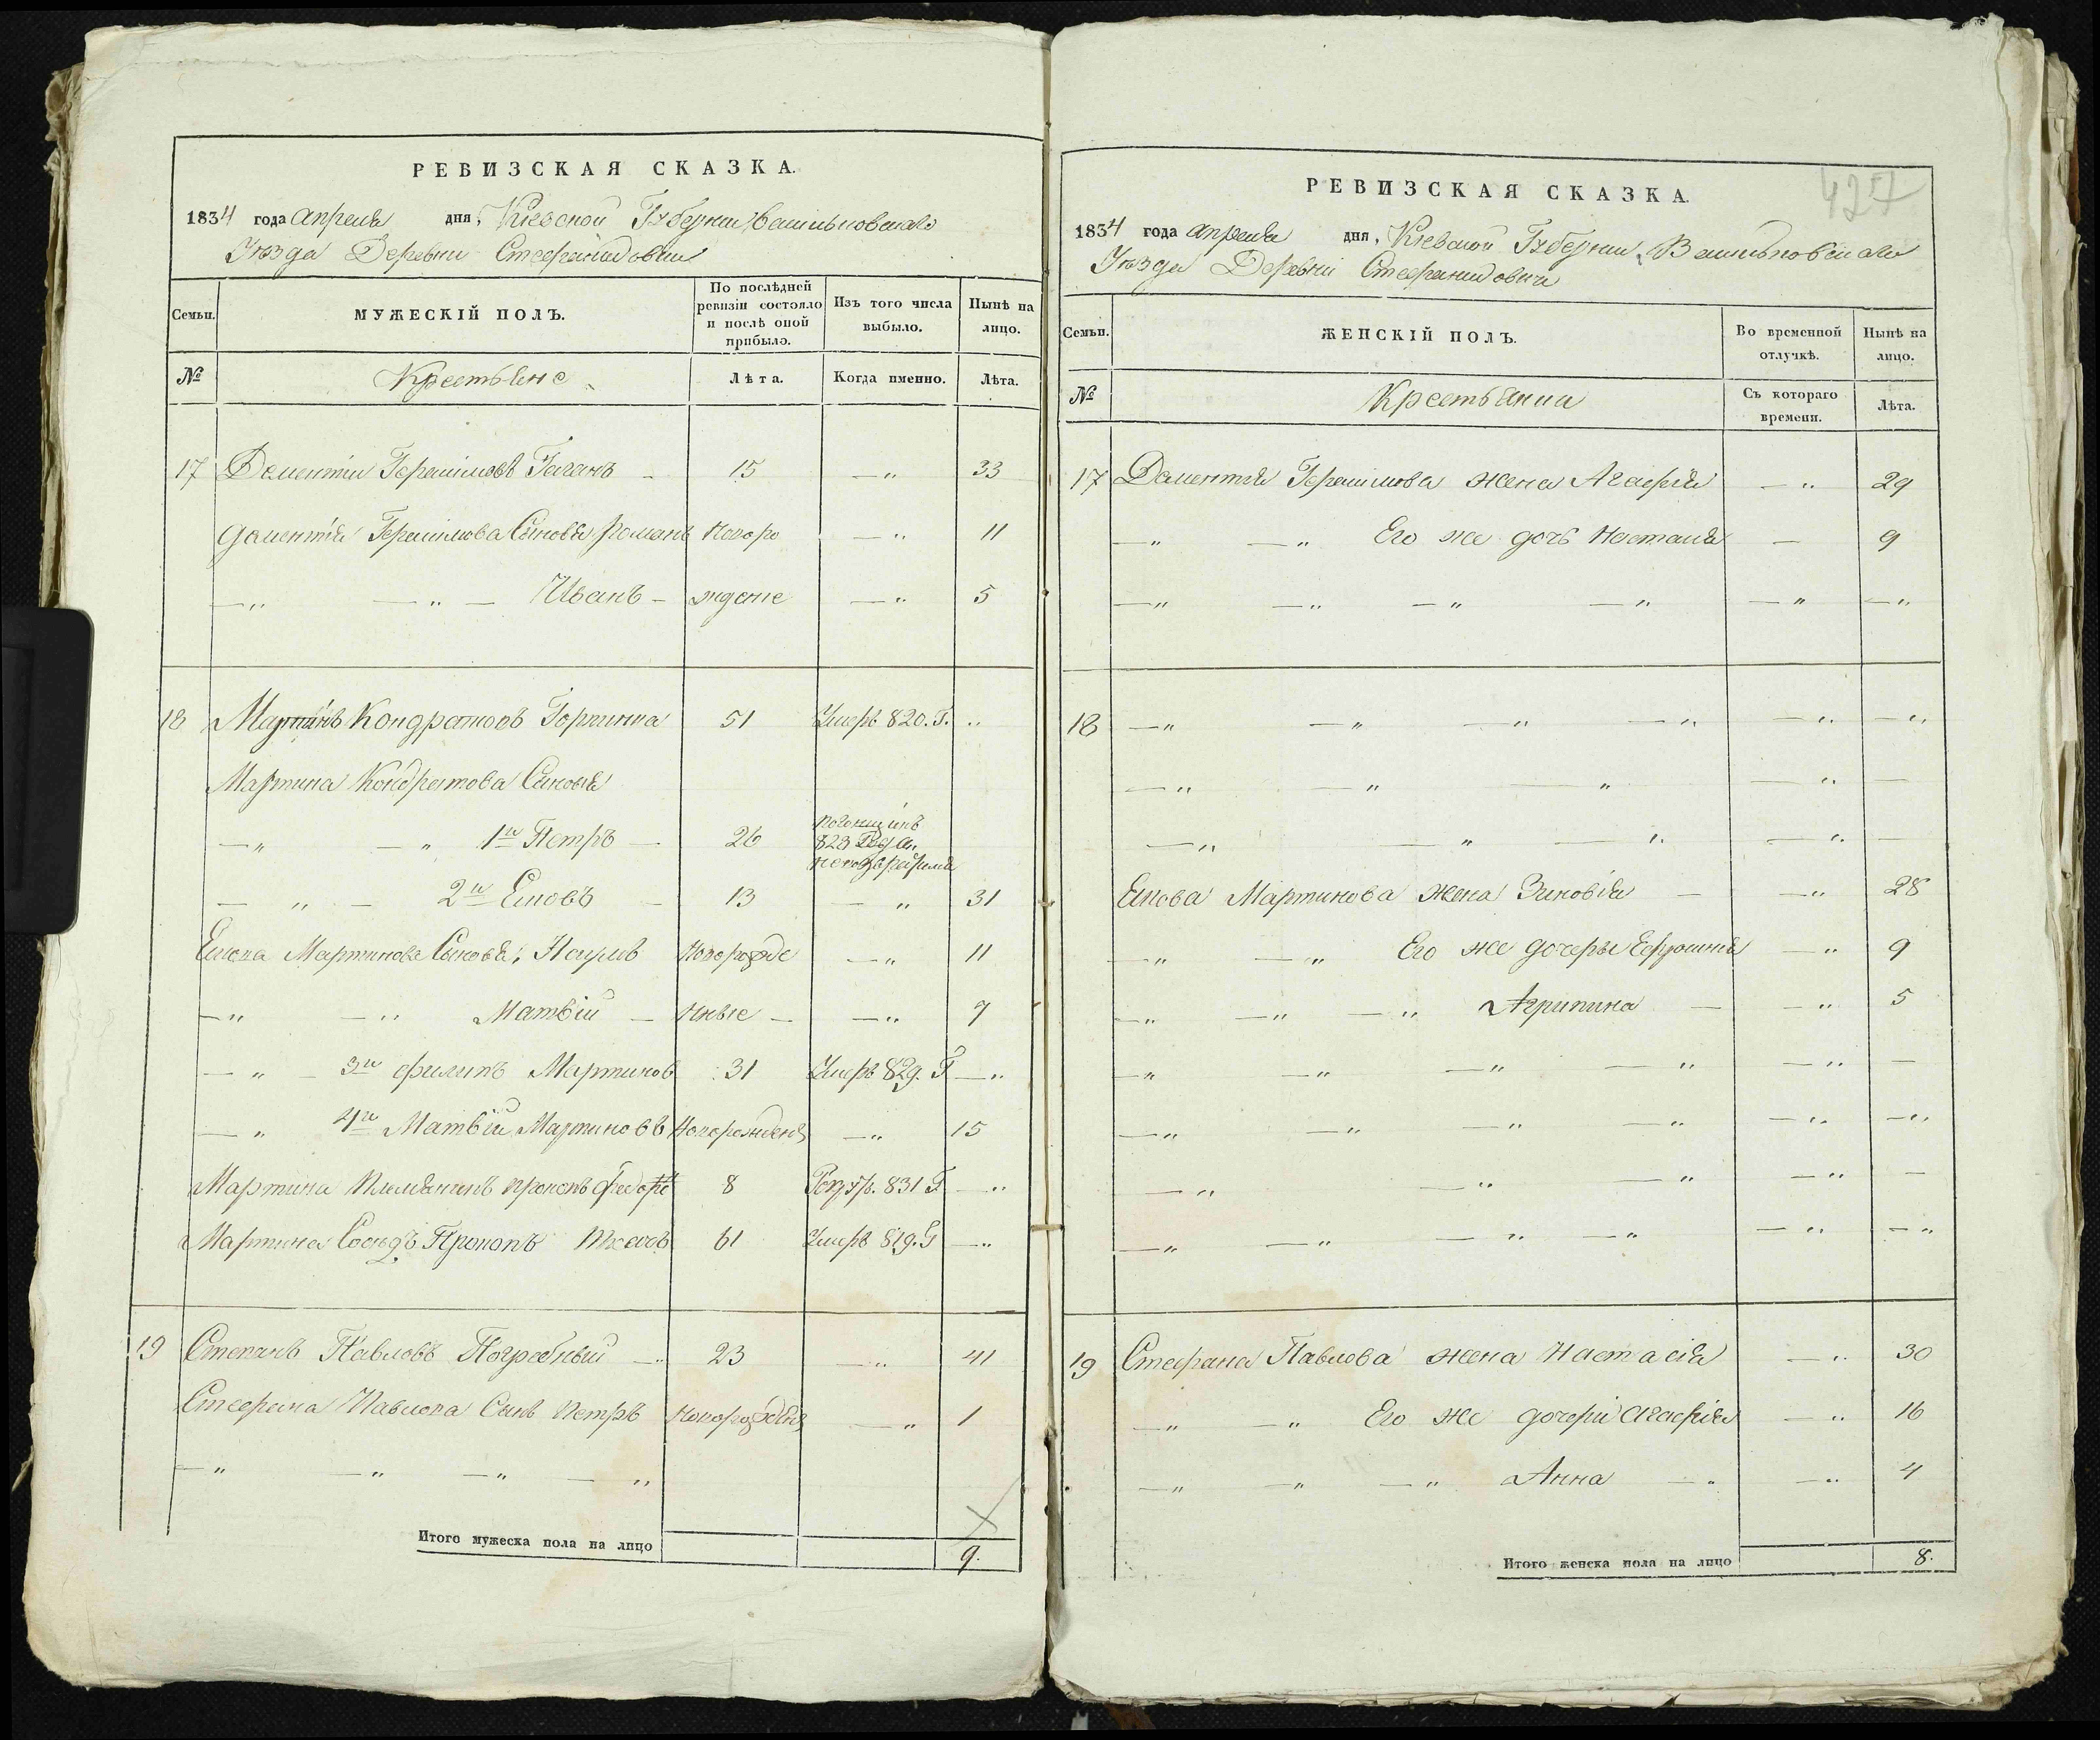 РЕВИЗСКАЯ СКАЗКА.
1834 года апреля дня, Кіевской Губерни Васильковскаго
Уѣзда Деревни Стефанидовки
Семьи. МУЖЕСКІЙ ПОЛЪ. По послѣдней ревизіи состояло и послѣ оной прибыло. Изъ того числа выбыло. Нынѣ на лицо.
№ Крестьяне Лѣта. Когда именно. Лѣта.
17 Дементіи Герасимовъ 15 — „ 33
Дементія Герасимова Сыновья Романъ Новоро — „ 11
— „ — „ — Иванъ — ждение — „ 5
18 Мартинъ Кондратовъ 51 Умеръ 820. Г. „
Мартина Кондратова Сыновья
— „ — „ 1й Петръ — 26 823
— „ — 2й Еиовъ — 13 — „ 31
Еиова Мартинова Сыновья; Наумъ Новорожде — „ 11
— „ — „ Матвій — нные — — „ 7
— „ — 3й филипъ Мартинов 31 Умеръ 829. Г — „
— „ 4й Матвій Мартиновъ Новорожденъ — „ 15
Мартина Племянникъ прокопъ 8 831 Г — „
Мартина Сосѣдъ Прокопъ Ткачъ 61 Умеръ 819. Г — „
19 Степанъ Павловъ Погребный — „ 23 — „ 41
Стефана Павлова Сынъ Петръ Новорожденъ — „ 1
— „ — „ — „ — „
Итого мужеска пола на лицо 9.
427
РЕВИЗСКАЯ СКАЗКА.
1834 года апреля дня, Кіевской Губерни, Васильковскаго
Уѣзда Деревні Стефанидовки
Семьи. ЖЕНСКІЙ ПОЛЪ. Во временной отлучкѣ. Нынѣ на лицо.
№ Крестьянки Съ котораго времени. Лѣта.
17 Дементія Герасимова жена Агафія — „ 29
— „ — „ Его же дочь Настасія — 9
— „ — „ — „ — „ — „ — „
18 — „ — „ — „ — „ — „ — „
— „ — „ — „ — „ —
— „ — „ — „ — „ —
Еиова Мартинова жена Зиновія — — „ 28
— „ — „ Его же дочеры Ефросиня — „ 9
— „ — „ — „ Агрипина — — „ 5
— „ — „ — „ — „ — „ —
— „ — „ — „ — „ — „ — „
— „ — „ — „ — „ —
— „ — „ — „ — „ — „ — „
19 Стефана Павлова жена Настасія — „ 30
— „ — „ Его же дочери Агафія — „ 16
— „ — „ — „ Анна — „ — „ 4
Итого женска пола на лицо 8.